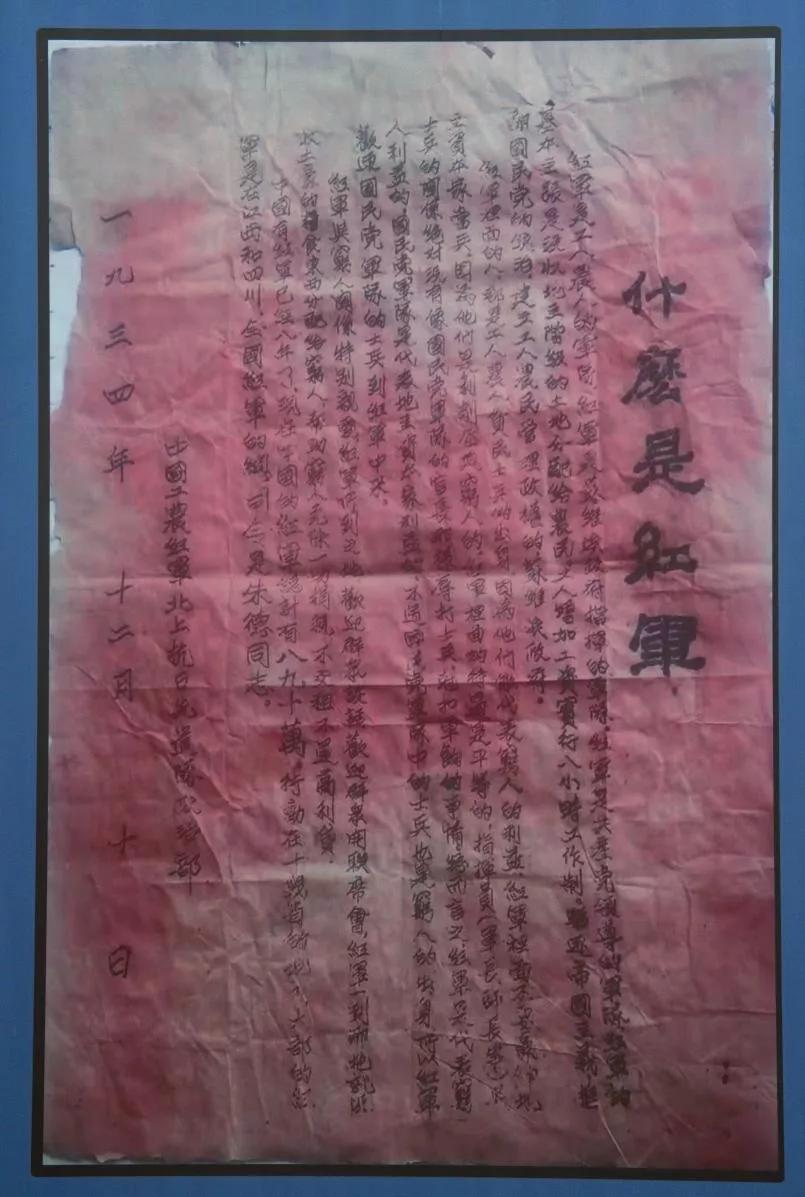 什麼是紅軍
紅軍是工人農人的軍隊，紅軍是蘇維埃政府指揮的軍隊，紅軍是共產党領導的軍隊，紅軍的
基本主張是沒收地主階級的土地分配給農民，工人增加工資實行八小時工作制。驅逐帝國主義推
翻國民党的統治，建立工人農民管理政權的蘇維埃政府。
紅軍裡面的人，都是工人農人貧民士兵的出身，因為他們能代表窮人的利益，紅軍裡面不要
主資本家當兵，因為他們是剝削壓迫窮人的，紅軍裡面的待遇是平等的，指揮員（軍長師長
士兵的關係絕對沒有像國民党軍隊的官長那樣辱打士兵，尅扣軍餉的事情，總而言之，紅軍是代表窮
人利益的，國民党軍隊是代表地主資本家利益的，不過國民党軍隊中的士兵也是窮人的出身，所以紅軍
歡迎國民党軍隊的士兵到紅軍中來。
紅軍與窮人關係特別親密，紅軍所到之地，歡迎群眾談話，歡迎群眾開聯席會，紅軍一到那地就
收土豪的糧食東西分配給窮人，幫助窮人免除一切捐稅，不交租不還高利貸。
中國有紅軍已經八年了，現在全國的紅軍總計有八九十萬，行動在十幾省的地方，大部的紅
軍是在江西和四川，全國紅軍的總司令是朱德同志。
中國工農紅軍北上抗日先遣隊政治部
一九三四年 十二月 十 日